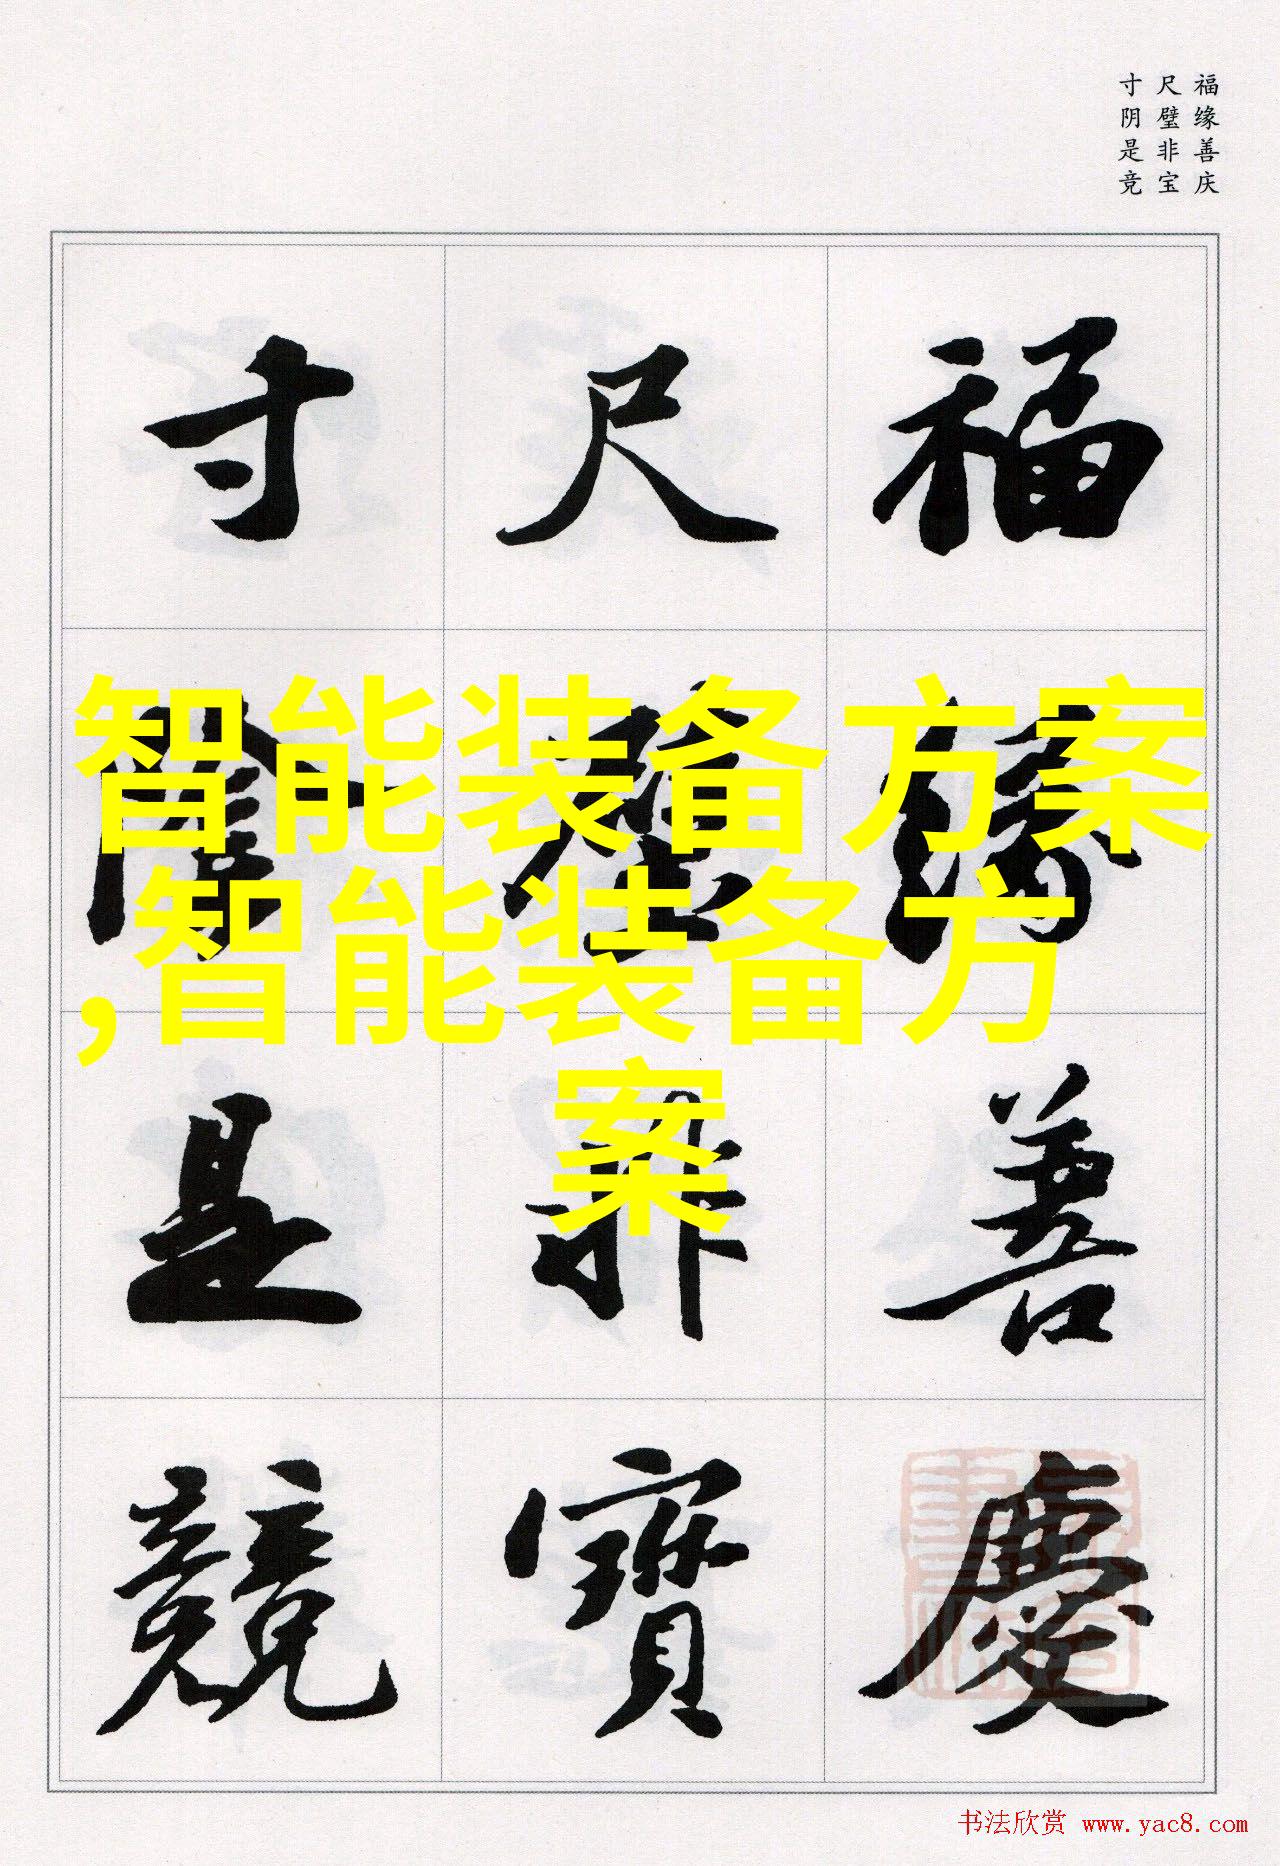 福缘善庆
尺璧非宝
寸阴是竞
福緣善慶
尺璧非寶
寸陰是競
智能装备方案
,智能装备方
案
书法欣赏 www.yac8.com